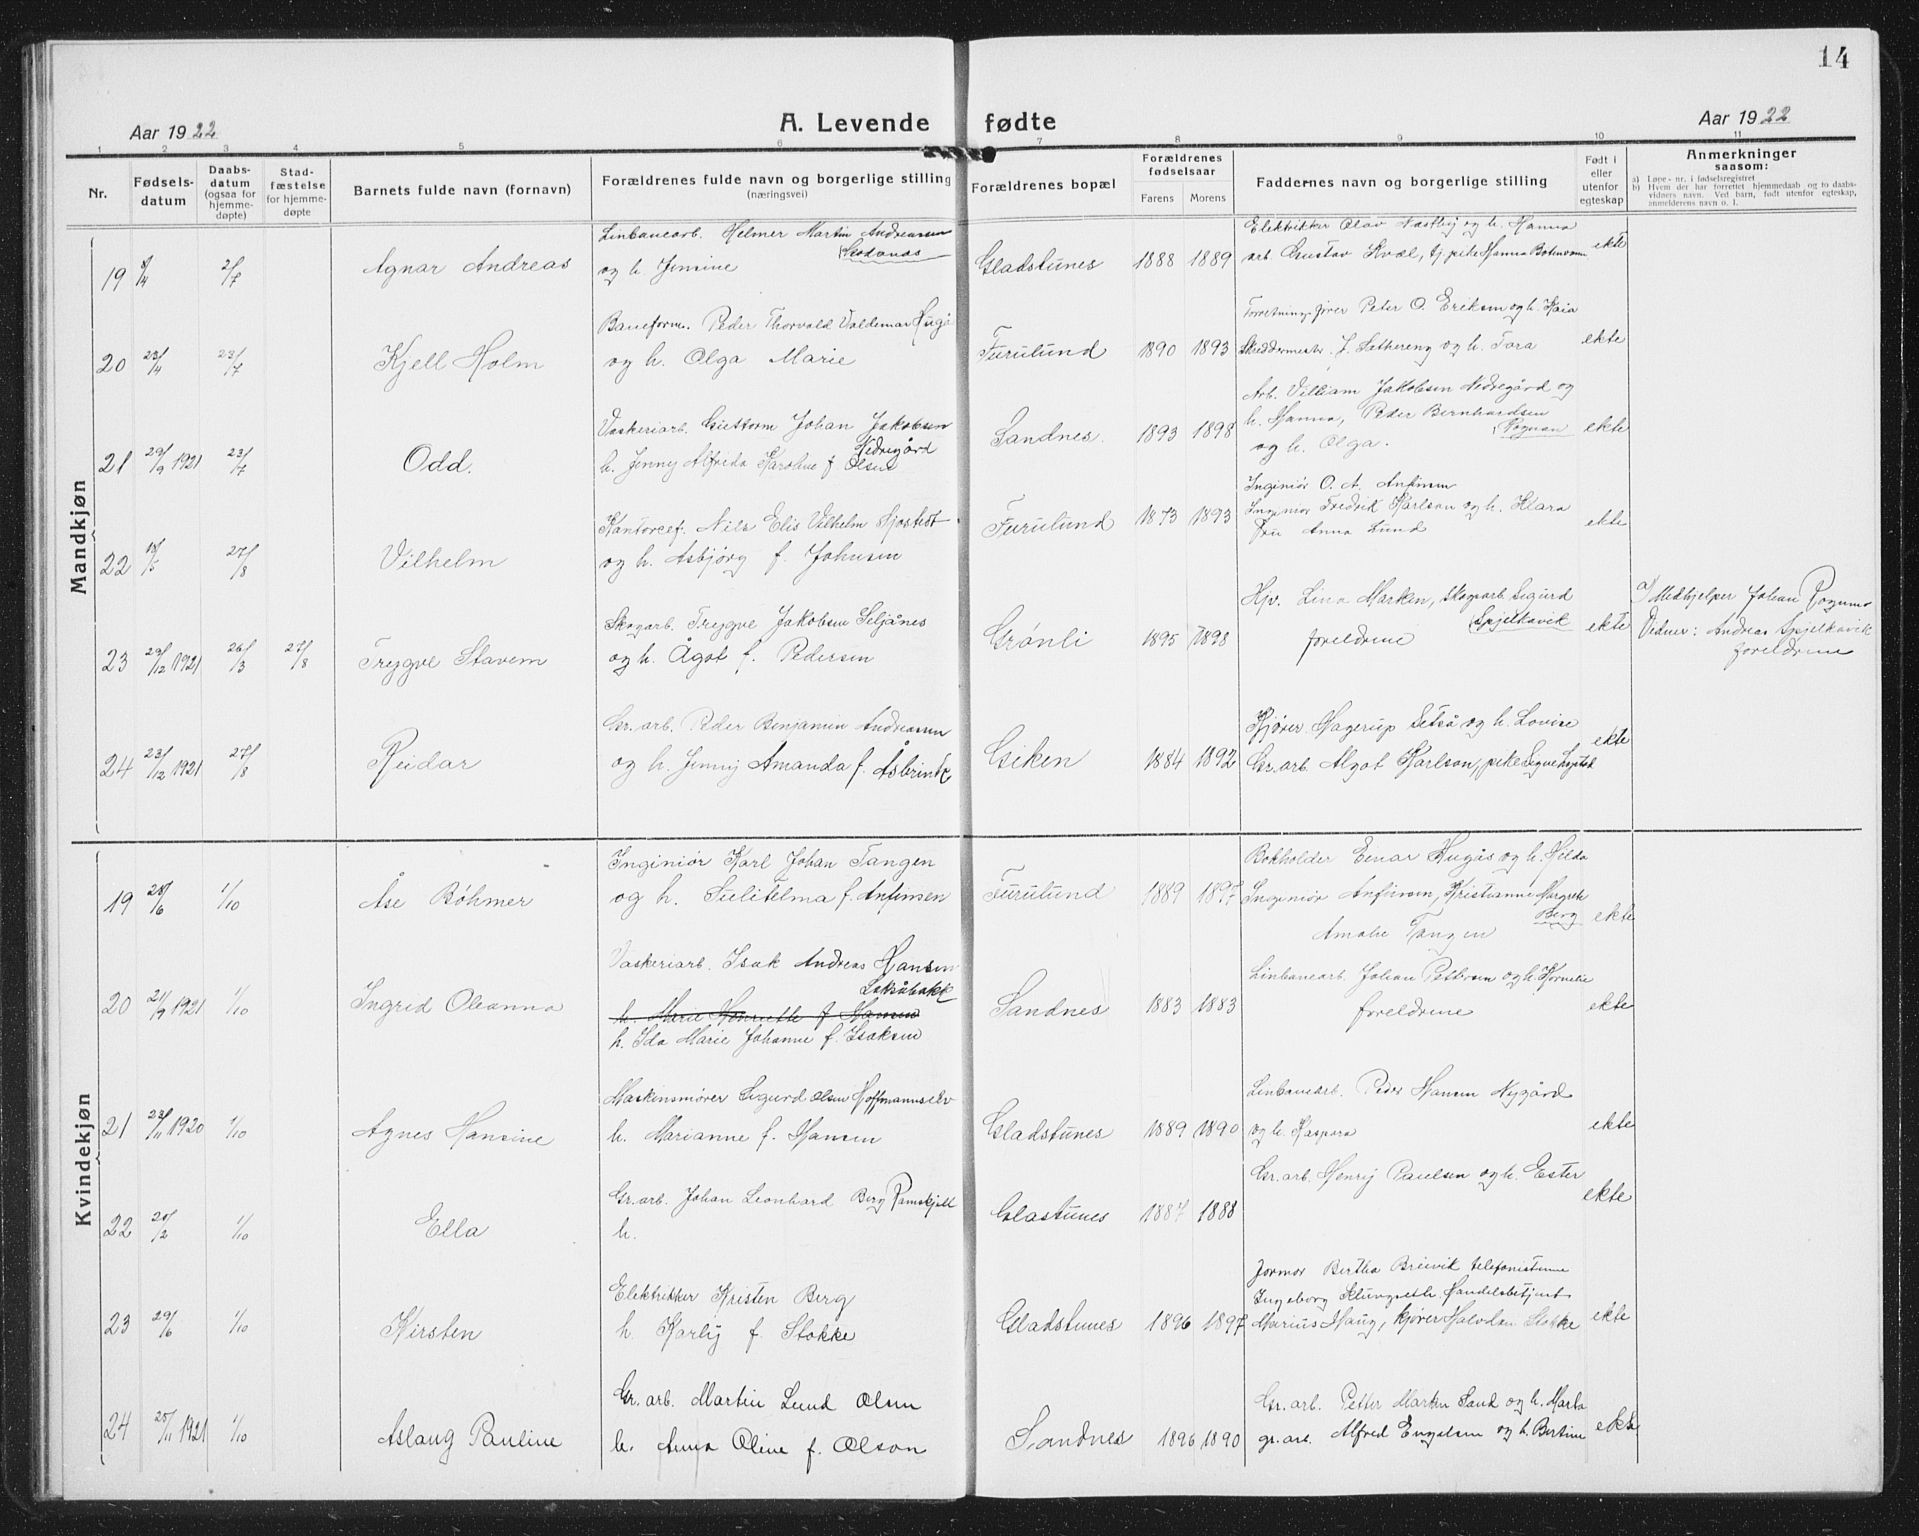 14
Aar 1922
A. Levende fødte
Aar 1922
1 2 3 4 5 6 7 8 9 10 11
Nr.
Fødsels-
datum
Daabs-
datum
(ogsaa for
hjemme-
døpte)
Stad-
fæstelse
for hjemme-
døpte
Barnets fulde navn (fornavn)
Forældrenes fulde navn og borgerlige stilling
(næringsvei)
Forældrenes bopæl
Forældrenes
fødselsaar
Farens Morens
Faddernes navn og borgerlige stilling
Født i
eller
utenfor
egteskap
Anmerkninger
saasom:
a) Løpe-nr. i fødselsregistret
b) Hvem der har forrettet hjemmedaab og to daabs-
vidners navn. Ved barn, født utenfor egteskap,
anmelderens navn o. l.
Mandkjøn
Linbanearb. Helmer Martin Andreassen
19 2/7 Agnar Andreas
og h. Jensine
Gladstunes 1888 1889
Elektrikker Olav Næstby og h. Hanna
arb. Gustav Kvæl, tj. pike Hanna
ekte
Baneform. Peder Thorvald Valdemar Hugås
20 23/4 23/7 Kjell Holm
og h. Olga Marie
Furulund 1890 1893
Forretningsfører Peter O. Eriksen og h. Kaia
Skreddermestr. J. Sethereng og h. Tora
ekte
Vaskeriarb. Guttorm Johan Jakobsen
Nedregård
21 29/9 1921 23/7 Odd.
h. Jenny Alfrida Karoline f. Olsen
Sandnes. 1893 1898
Arb. Villiam Jakobsen Nedregård og
h. Hanna, Peder Bernhardsen
Rognan
og h. Olga.
ekte
Kontorcef. Nils Elis Vilhelm Sjøstedt
22 27/8 Vilhelm
og h. Asbjørg f. Johnsen
Furulund 1873 1893
Ingeniør O. A. Anfinsen
Ingeniør Fredrik Karlson og h. Klara
Fru Anna Lund
ekte
Skogarb. Trygve Jakobsen Seljånes
23 29/12 1921 26/3 27/8 Trygve Stavem
og h. Ågot f. Pedersen
Grønli 1895 1898
Hjv. Lina Marken, skogarb. Sigurd
Spjelkavik
foreldrene
ekte
a) Medhjelper Johan
Vidner: Andreas Spjelkavik
foreldrene
Gr. arb. Peder Benjamin Andreassen
24 23/12 1921 27/8 Reidar
og h. Jenny Amanda f. Åsbrink
Giken 1884 1892
Kjører Hagerup Setså og h. Lovise
Gr. arb. Algot Karlson, pike
ekte
Kvindekjøn
Ingeniør Karl Johan Tangen
19 28/6 1/10 Åse Böhmer
og h. Sulitelma f. Anfinsen
Furulund 1889 1897
Bokholder Einar Hugås og h. Hilda
Ingeniør Anfinsen, Kristianne Margrete
Berg
Amalie Tangen
ekte
Vaskeriarb. Isak Andreas Hansen
Laksåbakk
20 21/9 1921 1/10 Ingrid Oleanna
h. Marie Henriette f. Hansen
h. Ida Marie Johanne f. Isaksen
Sandnes 1883 1883
Linbanearb. Johan Pettersen og h. Kornelie
foreldrene
ekte
Maskinsmører Sigurd Olsen Hoffmannselv
21 23/11 1920 1/10 Agnes Hansine
h. Marianne f. Hansen
Gladstunes 1889 1890
Linbanearb. Peder Hansen Nygård
og h. Kaspara
ekte
Gr. arb. Johan Leonhard Berg Ramskjell
22 20/2 1/10 Ella
h.
Glastunes 1887 1888
Gr. arb. Henry Paulsen og h. Ester
ekte
Elektrikker Kristen Berg
23 29/6 1/10 Kirsten
h. Karly f. Stokke
Gladstunes 1896 1897
Jormor Bertha Breivik telefonistinne
Ingeborg Klungseth, Handelsbetjent
Marius Haug, kjører Halvdan Stokke
ekte
Gr. arb. Martin Lund Olsen
24 25/11 1921 1/10 Aslaug Pauline
h. Anna Oline f. Olson
Sandnes 1896 1890
Gr. arb. Petter Marken Sand og h. Marta
gr. arb. Alfred Engelsen og h. Bertine
ekte